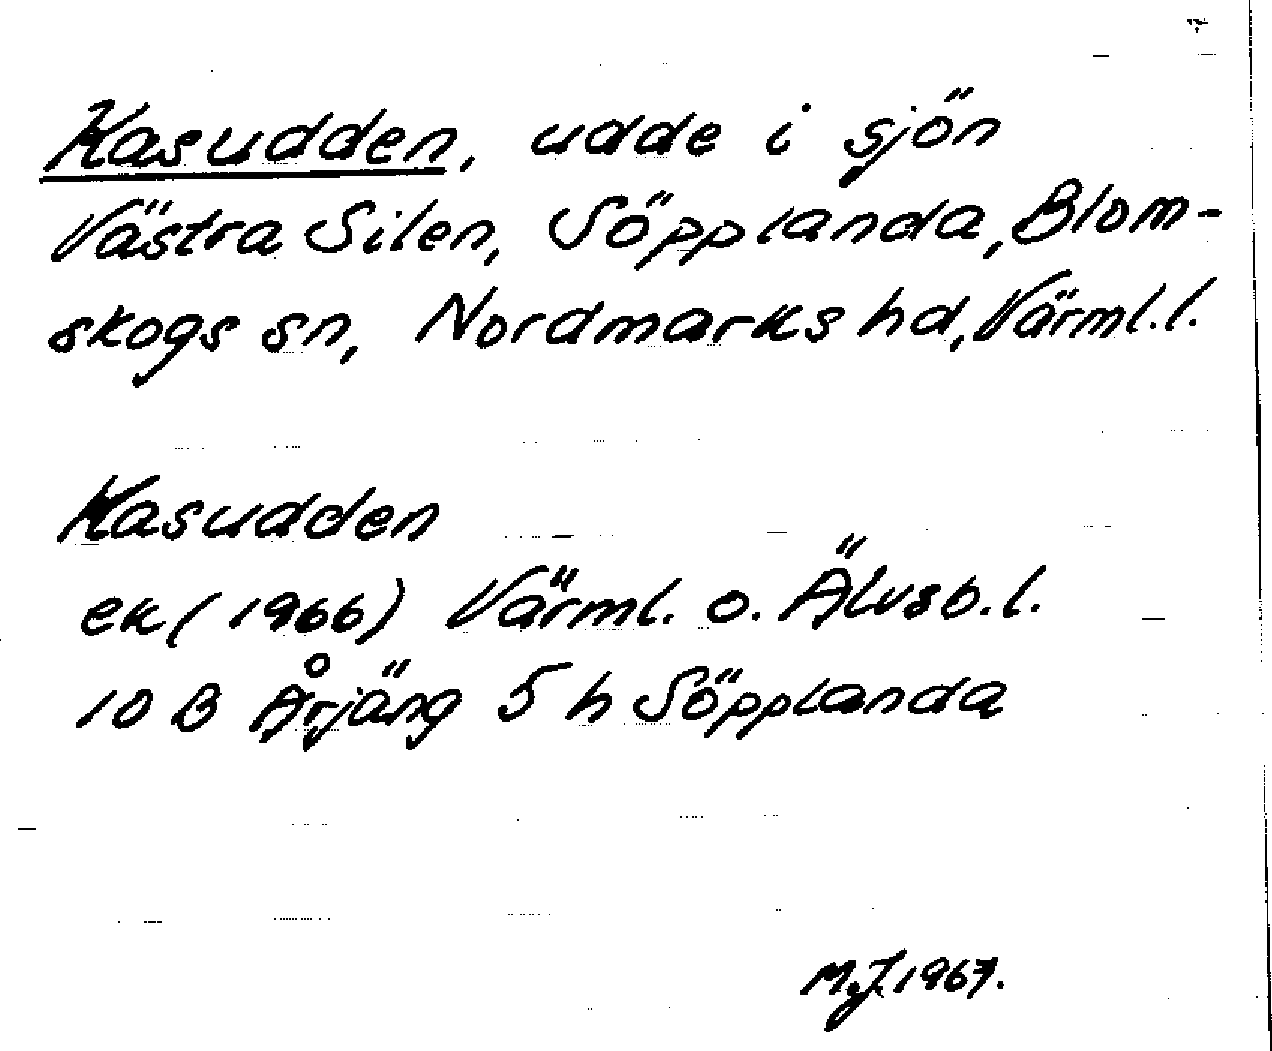 Kasudden, udde i sjön
Västra Silen, Söpplanda, Blom-
skogs sn, Nordmarks hd, Värml. l.
Kasudden
ek (1966) Värml. o. Älvsb. l.
10 B Årjäng 5 h Söpplanda
M.J. 1967.